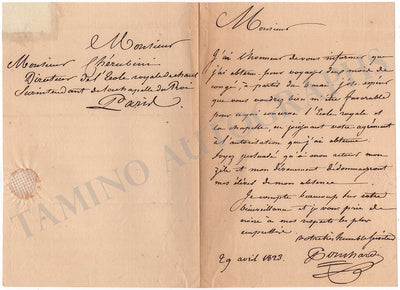 Monsieur
Monsieur Cherubini
Directeur de l'Ecole royale de chant
Surintendant de la chapelle du Roi
Paris
Monsieur
J'ai l'honneur de vous informer que
j'ai obtenu pour voyager deux mois de
congé, à partir du 1er mai; j'ose espérer
que vous voudrez bien m'être favorable
pour ce qui concerne l'Ecole royale et
la chapelle, en joignant votre agrément
à l'autorisation que j'ai obtenue.
Soyez persuadé qu'à mon retour mon
zèle et mon dévouement dédommageront
mes élèves de mon absence.
Je compte beaucoup sur votre
bienveillance et je vous prie de
croire à mes respects les plus
empressés.
votre très humble serviteur
Ponchard
29 avril 1823.
TAMINO AUTOGRAPHS